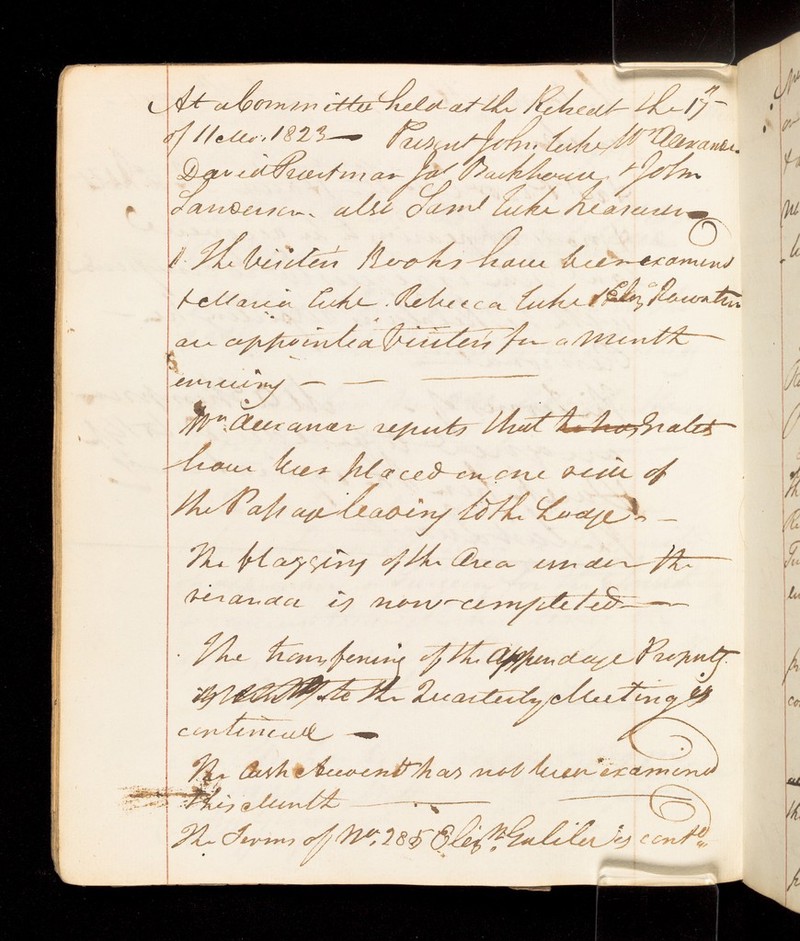 At a Committee held at the Retreat the 17th
of 11 Mo. 1823 — Present John Tuke Wm Alexander
David Priestman Jas Backhouse & John
Sanderson also Saml Tuke Treasurer
The Visitors Books have been examined
& Maria Tuke Rebecca Tuke & Eliz Rowntree
are appointed Visitors for a Month
ensuing — — —
Wm Alexander reports that he has Grates
have been placed on one side of
the Passage leading to the Lodge —
The flagging of the Area under the
veranda is now completed —
The transferring of the Appendage Property
to the Quarterly Meeting is
continued —
The Cash Account has not been examined
this Month —
The Terms of No. 285 Eliz is contd